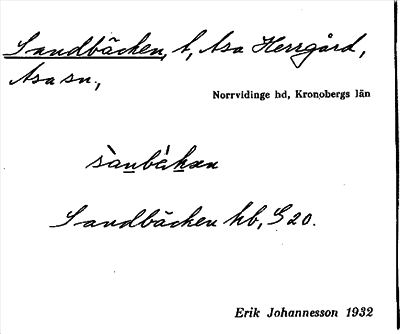 Sandbäcken, t, Asa Herrgård,
Asa sn.,
Norrvidinge hd, Kronobergs län
sànbækæn
Sandbäcken hb, G 20.
Erik Johannesson 1932